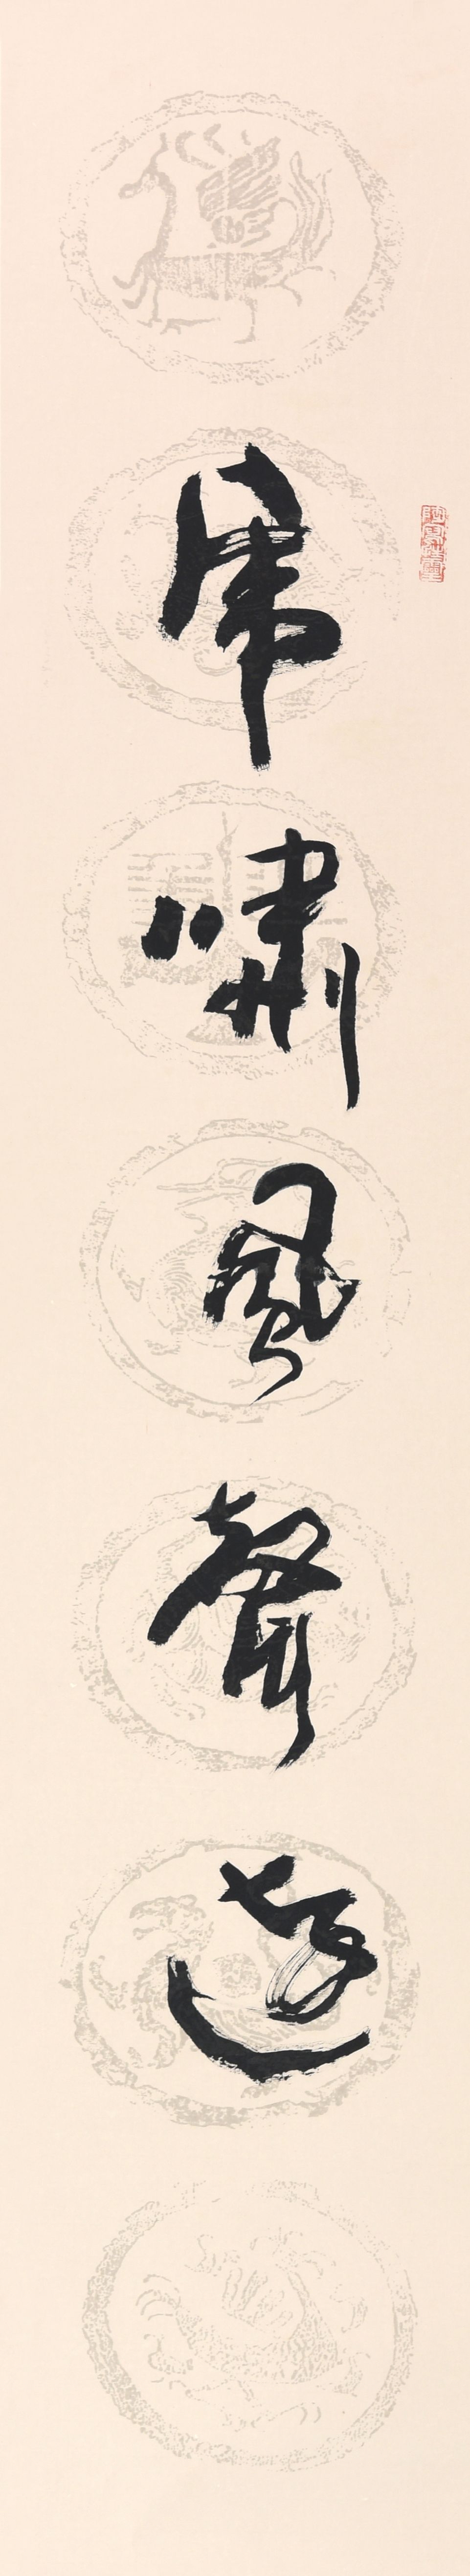 虎嘯風聲遠